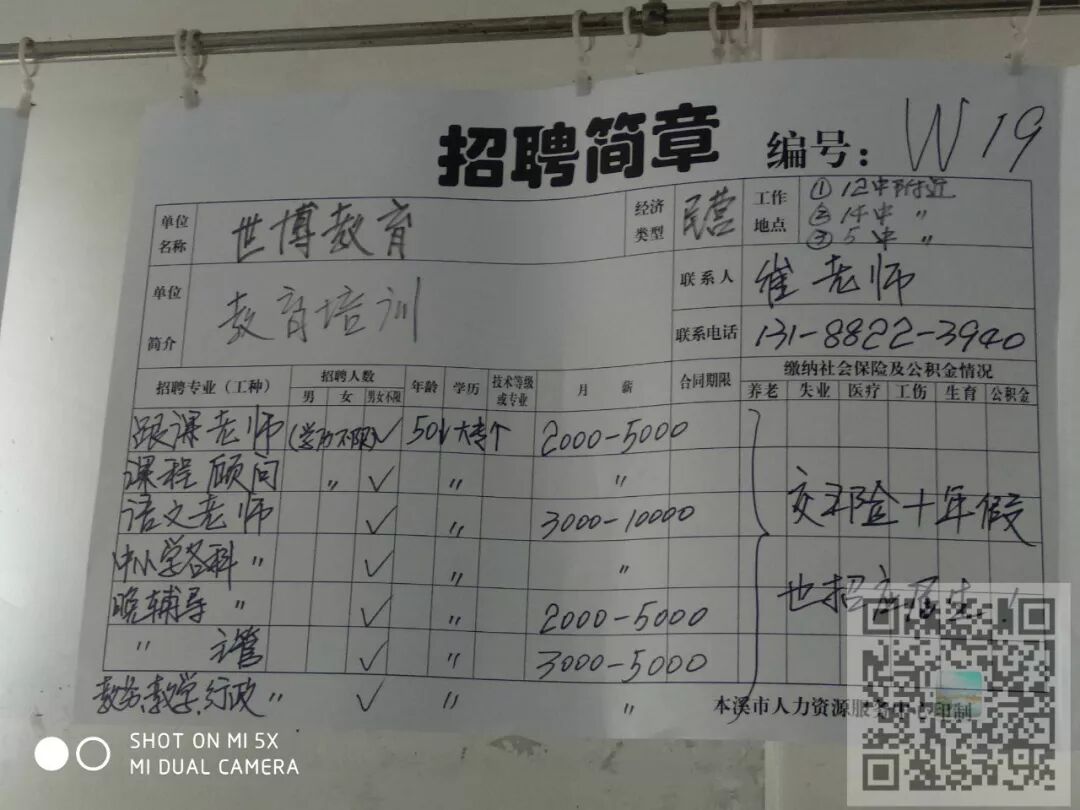 招聘简章
编号: W19
单位名称 世博教育 经济类型 民营 工作地点 ①12中附近
②14中 〃
③5中 〃
单位简介 教育培训 联系人 崔老师
联系电话 131-8822-3940
招聘专业（工种） 招聘人数 年龄 学历 技术等级或专业 月薪 合同期限 缴纳社会保险及公积金情况
男 女 男女不限 养老 失业 医疗 工伤 生育 公积金
跟课老师 (学历不限) ✓ 50↓ 大专 2000-5000
课程顾问 〃 ✓ 〃 〃
语文老师 ✓ 〃 3000-10000
交保险+年假
中小学各科 〃 ✓ 〃 〃
晚辅导 〃 ✓ 〃 2000-5000
也招应届生!
〃 主管 ✓ 〃 3000-5000
教务、教学、行政 〃 ✓ 〃 〃
本溪市人力资源服务中心印制
SHOT ON MI 5X
MI DUAL CAMERA